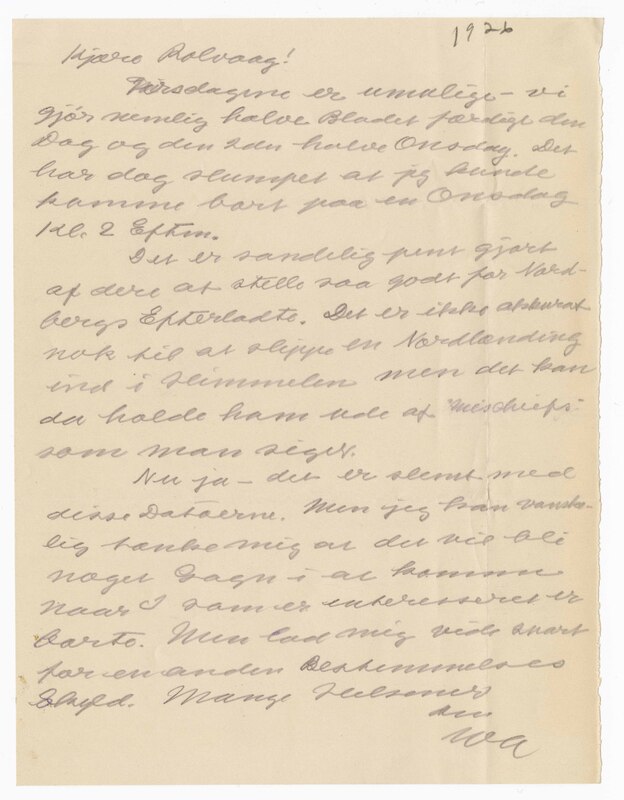 1926
Kjære Rolvaag!
Tirsdagene er umulige - vi
gjør nemlig halve Bladet færdige den
Dag og den 2den halve Onsdag. Det
har dog slumpet at jeg kunde
komme bort paa en Onsdag
Kl. 2 Eftm.
Det er sandelig pent gjort
af dere at stelle saa godt for Nord-
bergs Efterladte. Det er ikke akkurat
nok til at slippe en Nordlænding
ind i Himmelen men det kan
da holde ham ude af "mischief"
som man siger.
Nu ja - det er slemt med
disse Datoerne. Men jeg kan vanske-
lig tænke mig at det vil bli
noget Gagn i at komme
naar I som er interesseret er
borte. Men lad mig vide snart
for en anden Bestemmelses
Skyld. Mange Hilsener
din
WA